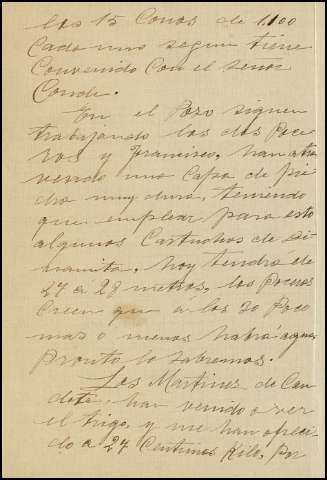 los 15 Conos de 1100
Cada uno segun tiene
Convenido Con el señor
Conde.
En el Pozo siguen
trabajando los dos Poce-
ros y Francisco, han atra
vesado una Capa de pie
dra muy dura, teniendo
que emplear para esto
algunos Cartuchos de di-
namita, hoy tendra de
27 á 28 metros, los Poceros
Creen que á los 30 Poco
mas o menos habrá agua
Pronto lo sabremos.
Los Martines de Cau
dete, han venido a ver
el trigo, y me han ofreci
do a 27 Centimos Kilo, Por